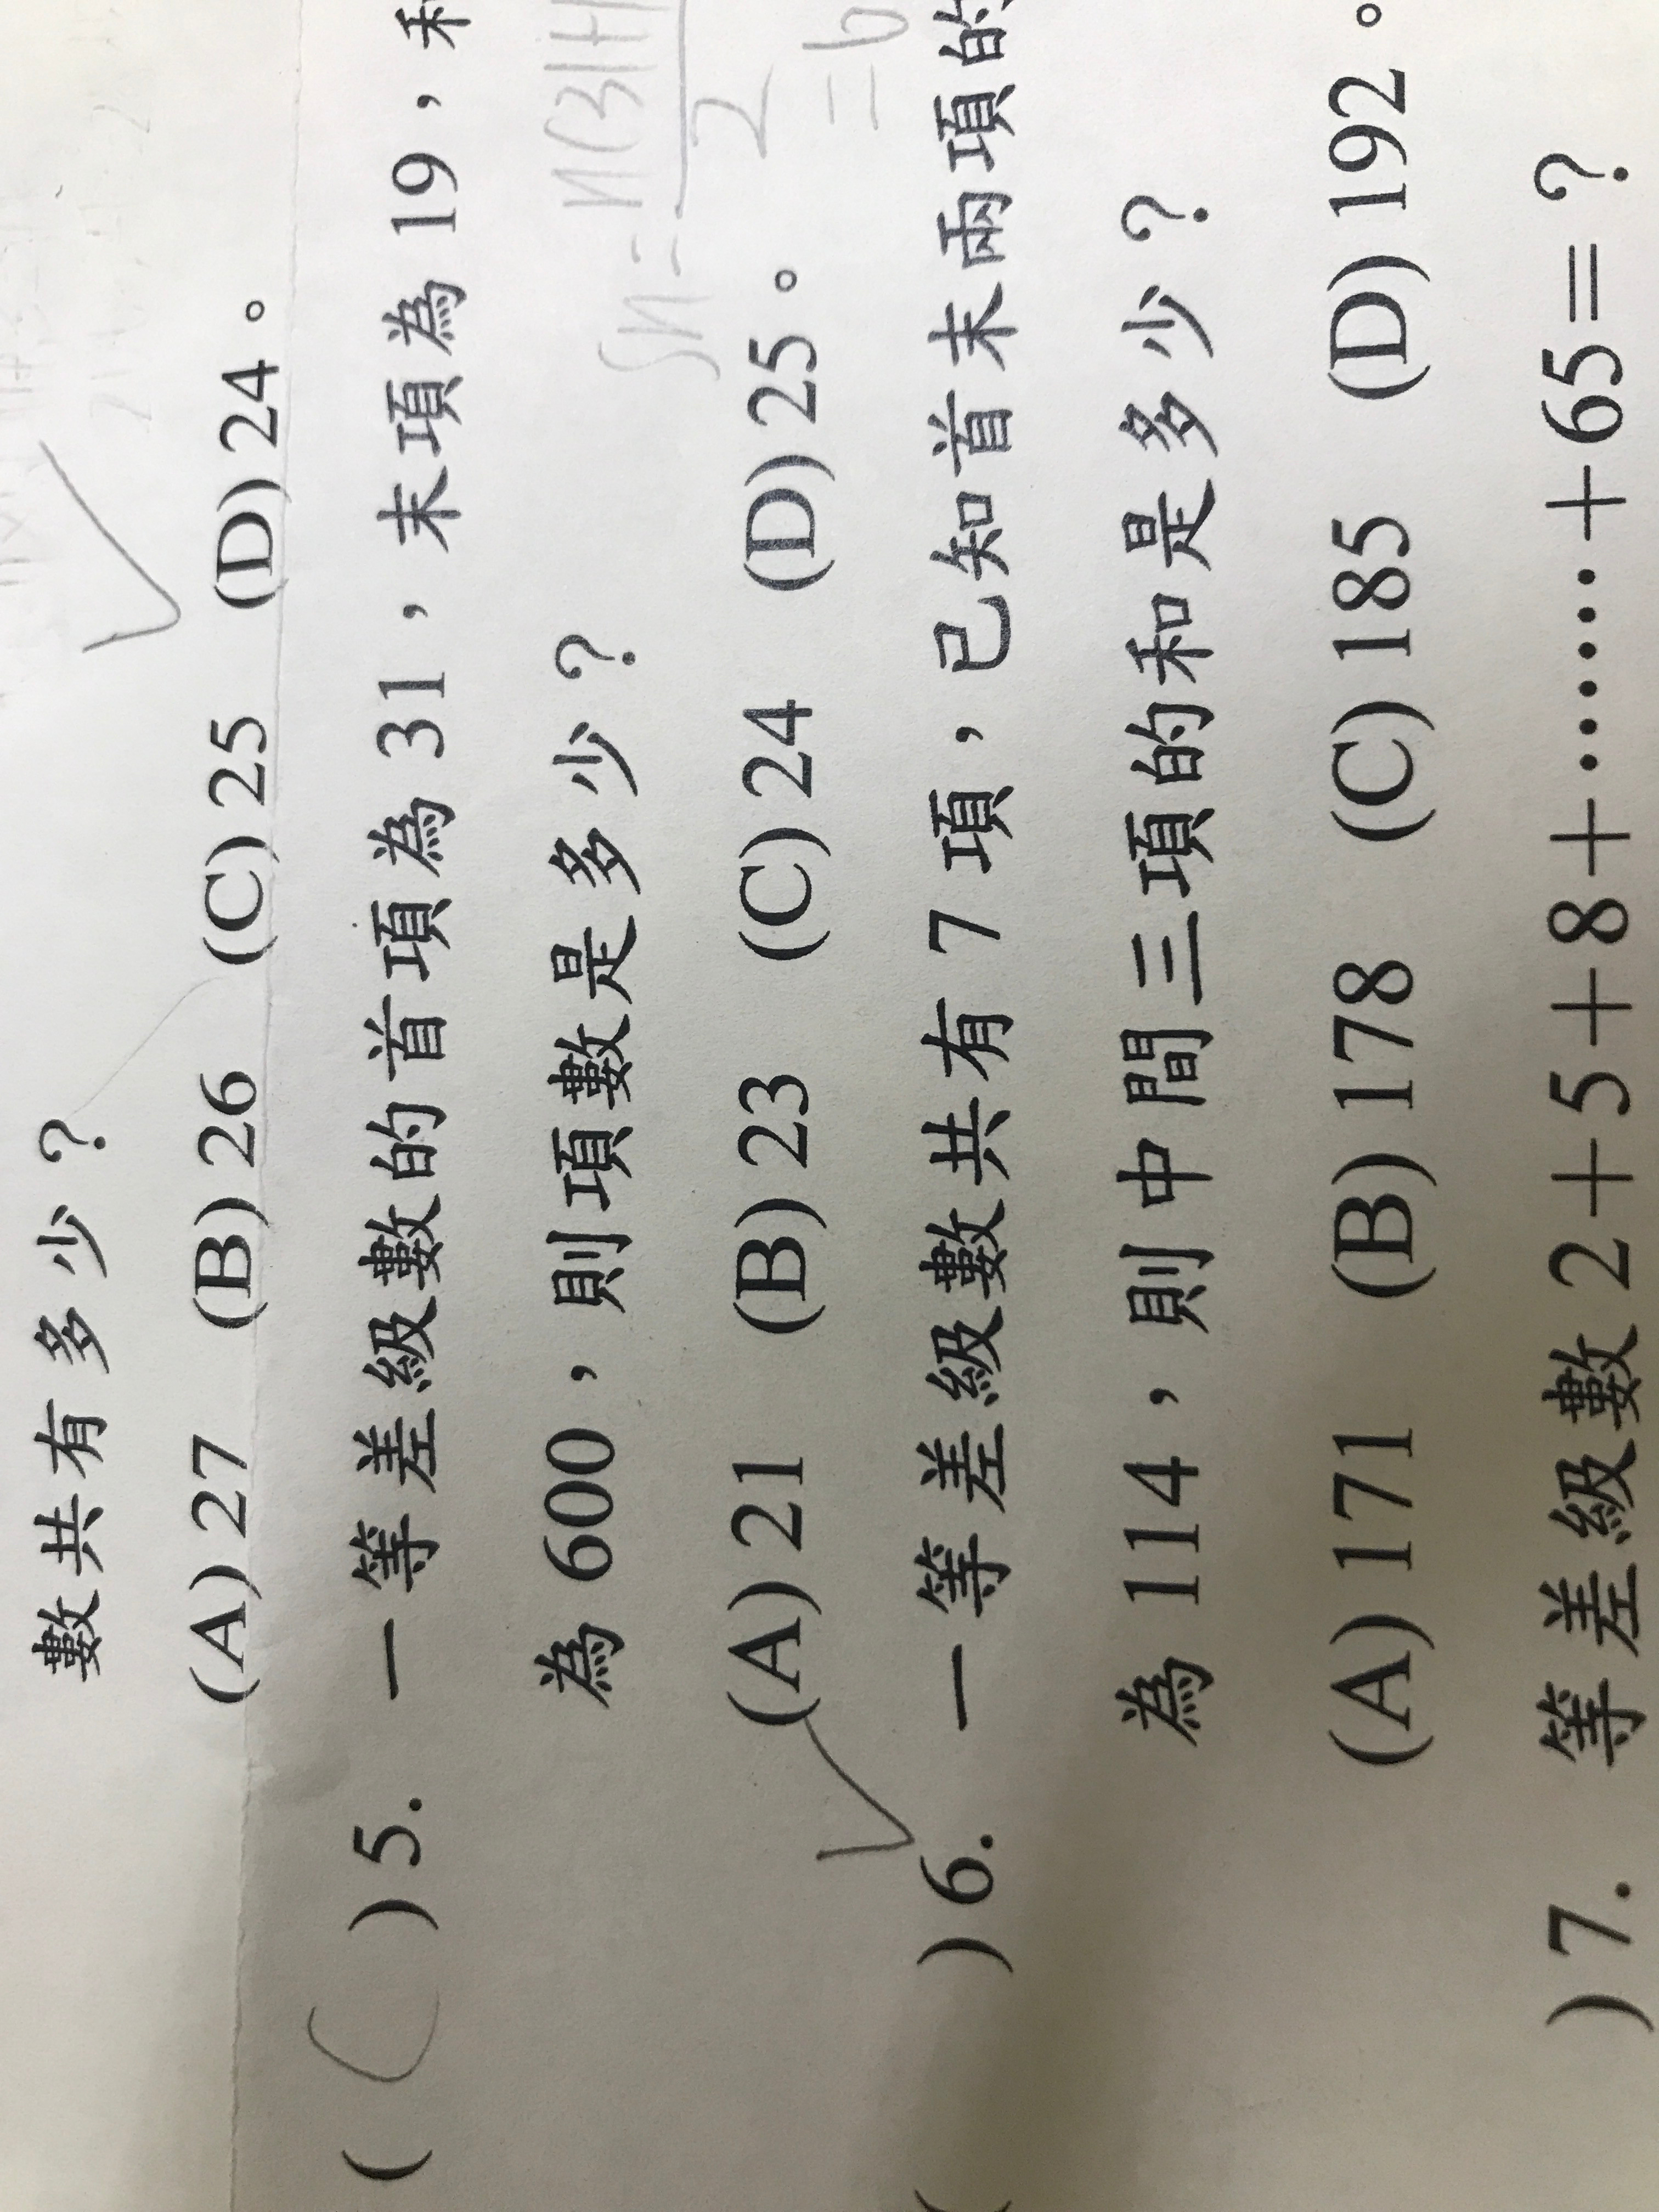 數共有多少?
(A) 27 (B) 26 (C) 25 (D) 24。
( C ) 5. 一等差級數的首項為 31,末項為 19,和
為 600,則項數是多少?
Sn = n(31+1
2
= 6
(A) 21 (B) 23 (C) 24 (D) 25。
( ) 6. 一等差級數共有 7 項,已知首末兩項的
為 114,則中間三項的和是多少?
(A) 171 (B) 178 (C) 185 (D) 192。
) 7. 等差級數 2+5+8+……+65=?